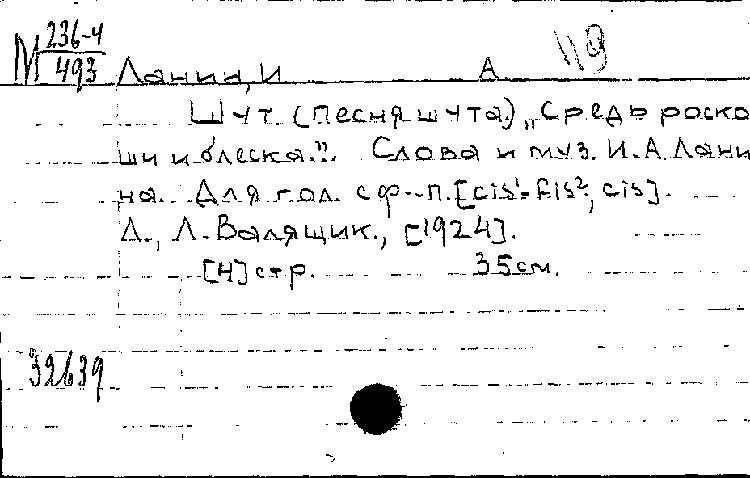 М 236-4
493 Ланин, И А 119
Шут (песня шута) „Средь роско
ши и блеска.". Слова и муз. И.А.Лани
на. Для гол. с ф.-п. [cis¹-fis², cis].
Л., Л. Валящик., [1924].
[4] стр. 35 см.
32639